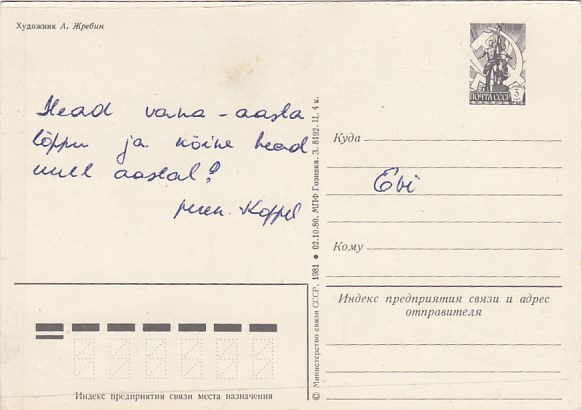 Художник А. Жребин
Head vana-aasta
lõppu ja kõike head
uuel aastal!
peren. Koppel
ПОЧТА СССР
3
Куда
Evi
Кому
Индекс предприятия связи и адрес
отправителя
Индекс предприятия связи места назначения
© Министерство связи СССР, 1981 ● 02.10.80. МПФ Гознака. З. 8192. Ц. 4 к.